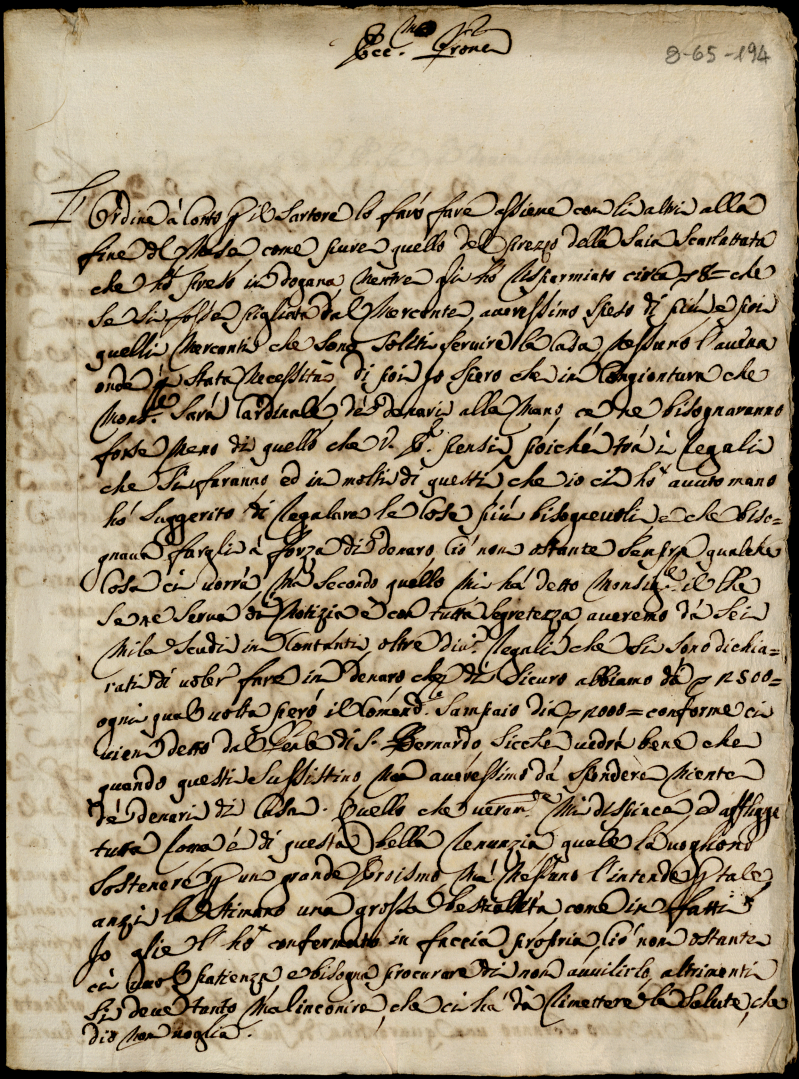 Ecc.mo Prone
8-65-194
L'Ordine à conto p il Sartore lo farò fare assieme con li altri alla
fine del Mese, come pure quello del prezzo della Saia Scarlattata
che hò preso in dogana, mentre gli hò risparmiato circa 8 = che
se si fosse pigliata dal Mercante, averessimo speso di più, e poi
quelli Mercanti che sono soliti servire la Casa, nessuno l'aveva
onde è stata necessità, di poi Io spero che in congiontura che
Mons.re sarà Cardinale de denari alla mano ce ne bisognaranno
forse meno di quello che V. E. pensi, poiché trà i regali
che si faranno ed in molti di questi che io ci hò avuto mano
hò suggerito di regalare le cose più bisognevoli, e che biso=
gnava fargli à forza di denaro, ciò non ostante sempre qualche
cosa ci vorrà, mà secondo quello mi hà detto Monsig.re il che
se ne serva di notizia e con tutta segretezza, averemo dà sei
mila scudi in contanti, oltre div.i regali che si sono dichia=
rati di voler fare in denaro che di sicuro abbiamo dà 2500=
ogni qual volta però il Comend.e Sampaio dia 2000= conforme ci
vien detto dal Abate di S. Bernardo, sicche vedrà bene che
quando questi sussistino non averessimo dà spendere niente
de denari di Casa. Quello che veram.te mi dispiace, ed affligge
tutta Roma è di questa bella renunzia quale la vogliono
sostenere p un grande Eroismo, mà nessuno l'intende p tale,
anzi la stimano una grossa bestialità, come in fatti
Io glie l'hò confermato in faccia propria, ciò non ostante
ci vuol patienza e bisogna procurare di non avvilirlo, altrimenti
si deve tanto malinconire, che ci hà dà rimettere la salute, che
dio non voglia.